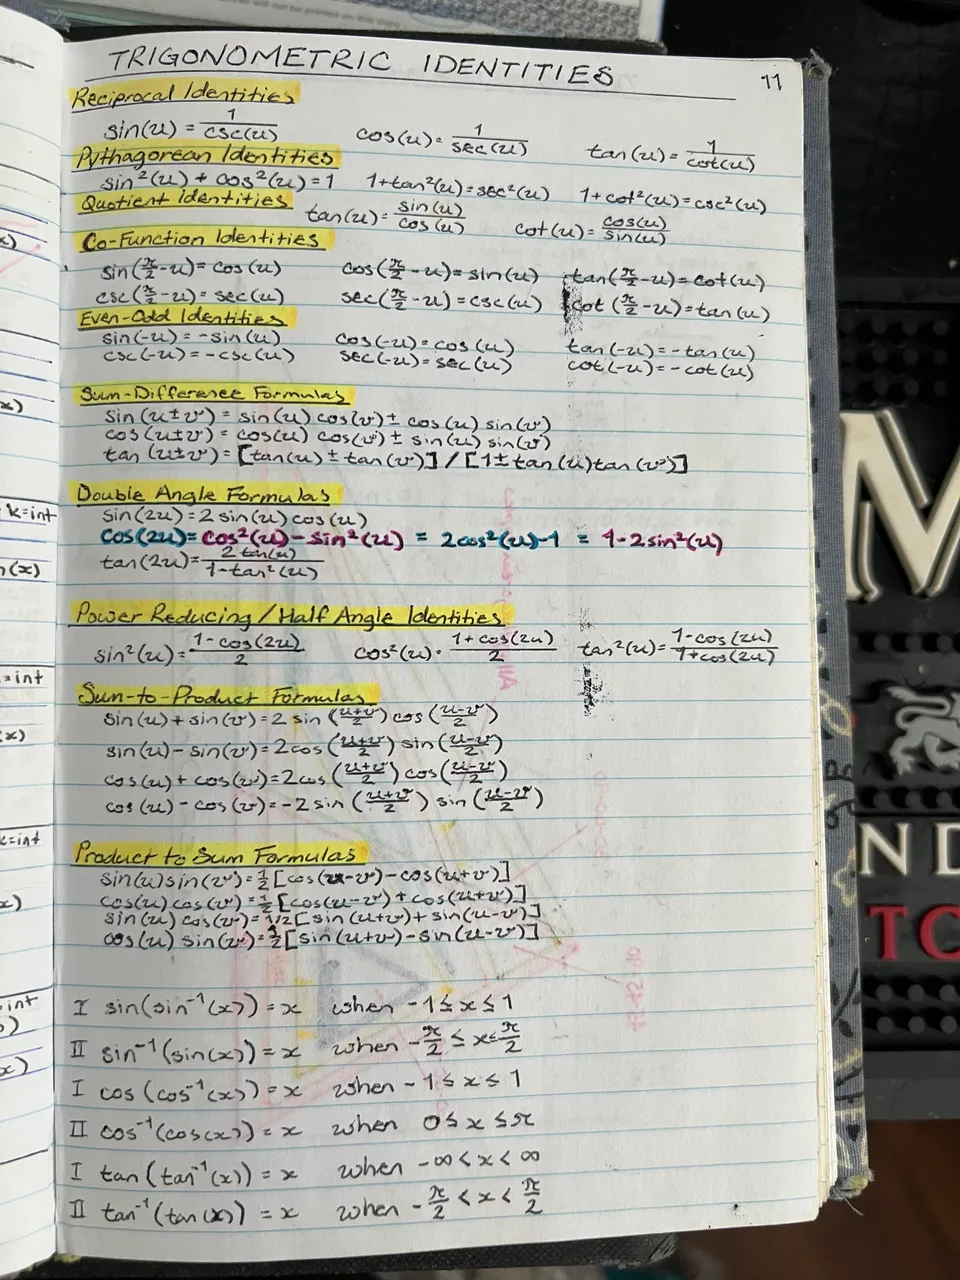 TRIGONOMETRIC IDENTITIES
11
Reciprocal Identities
sin(u) = 1/csc(u) cos(u) = 1/sec(u) tan(u) = 1/cot(u)
Pythagorean Identities
sin²(u) + cos²(u) = 1 1+tan²(u) = sec²(u) 1+cot²(u) = csc²(u)
Quotient Identities
tan(u) = sin(u)/cos(u) cot(u) = cos(u)/sin(u)
Co-Function Identities
sin(π/2-u) = cos(u) cos(π/2-u) = sin(u) tan(π/2-u) = cot(u)
csc(π/2-u) = sec(u) sec(π/2-u) = csc(u) cot(π/2-u) = tan(u)
Even-Odd Identities
sin(-u) = -sin(u) cos(-u) = cos(u) tan(-u) = -tan(u)
csc(-u) = -csc(u) sec(-u) = sec(u) cot(-u) = -cot(u)
Sum-Difference Formulas
sin(u±v) = sin(u) cos(v) ± cos(u) sin(v)
cos(u±v) = cos(u) cos(v) ± sin(u) sin(v)
tan(u±v) = [tan(u) ± tan(v)] / [1 ± tan(u)tan(v)]
Double Angle Formulas
sin(2u) = 2 sin(u) cos(u)
cos(2u) = cos²(u) - sin²(u) = 2cos²(u)-1 = 1-2sin²(u)
tan(2u) = 2tan(u)/1-tan²(u)
Power Reducing/Half Angle Identities
sin²(u) = 1-cos(2u)/2 cos²(u) = 1+cos(2u)/2 tan²(u) = 1-cos(2u)/1+cos(2u)
Sum-to-Product Formulas
sin(u) + sin(v) = 2 sin(u+v/2) cos(u-v/2)
sin(u) - sin(v) = 2cos(u+v/2) sin(u-v/2)
cos(u) + cos(v) = 2cos(u+v/2) cos(u-v/2)
cos(u) - cos(v) = -2 sin(u+v/2) sin(u-v/2)
Product to Sum Formulas
sin(u) sin(v) = 1/2 [cos(u-v) - cos(u+v)]
cos(u) cos(v) = 1/2 [cos(u-v) + cos(u+v)]
sin(u) cos(v) = 1/2 [sin(u+v) + sin(u-v)]
cos(u) sin(v) = 1/2 [sin(u+v) - sin(u-v)]
I sin(sin⁻¹(x)) = x when -1 ≤ x ≤ 1
II sin⁻¹(sin(x)) = x when -π/2 ≤ x ≤ π/2
I cos(cos⁻¹(x)) = x when -1 ≤ x ≤ 1
II cos⁻¹(cos(x)) = x when 0 ≤ x ≤ π
I tan(tan⁻¹(x)) = x when -∞ < x < ∞
II tan⁻¹(tan(x)) = x when -π/2 < x < π/2
k=int
=int
k=int
int
M
ND
TC